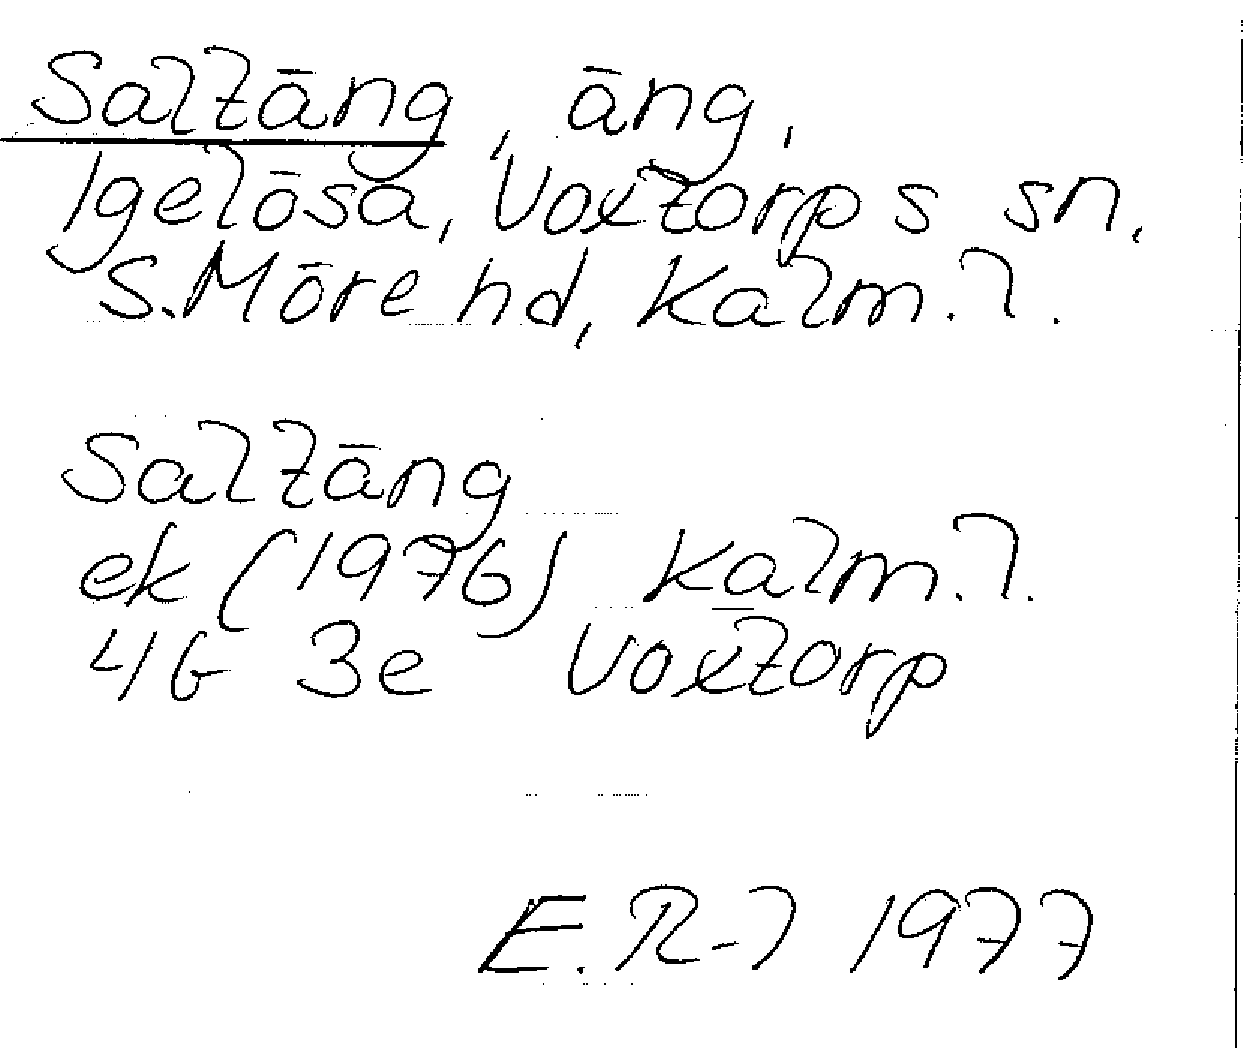 Saltäng, äng,
Igelösa, Voxtorps sn.
S. Möre hd, Kalm. l.
Saltäng
ek (1976) Kalm. l.
4G 3e Voxtorp
E. R-l 1977